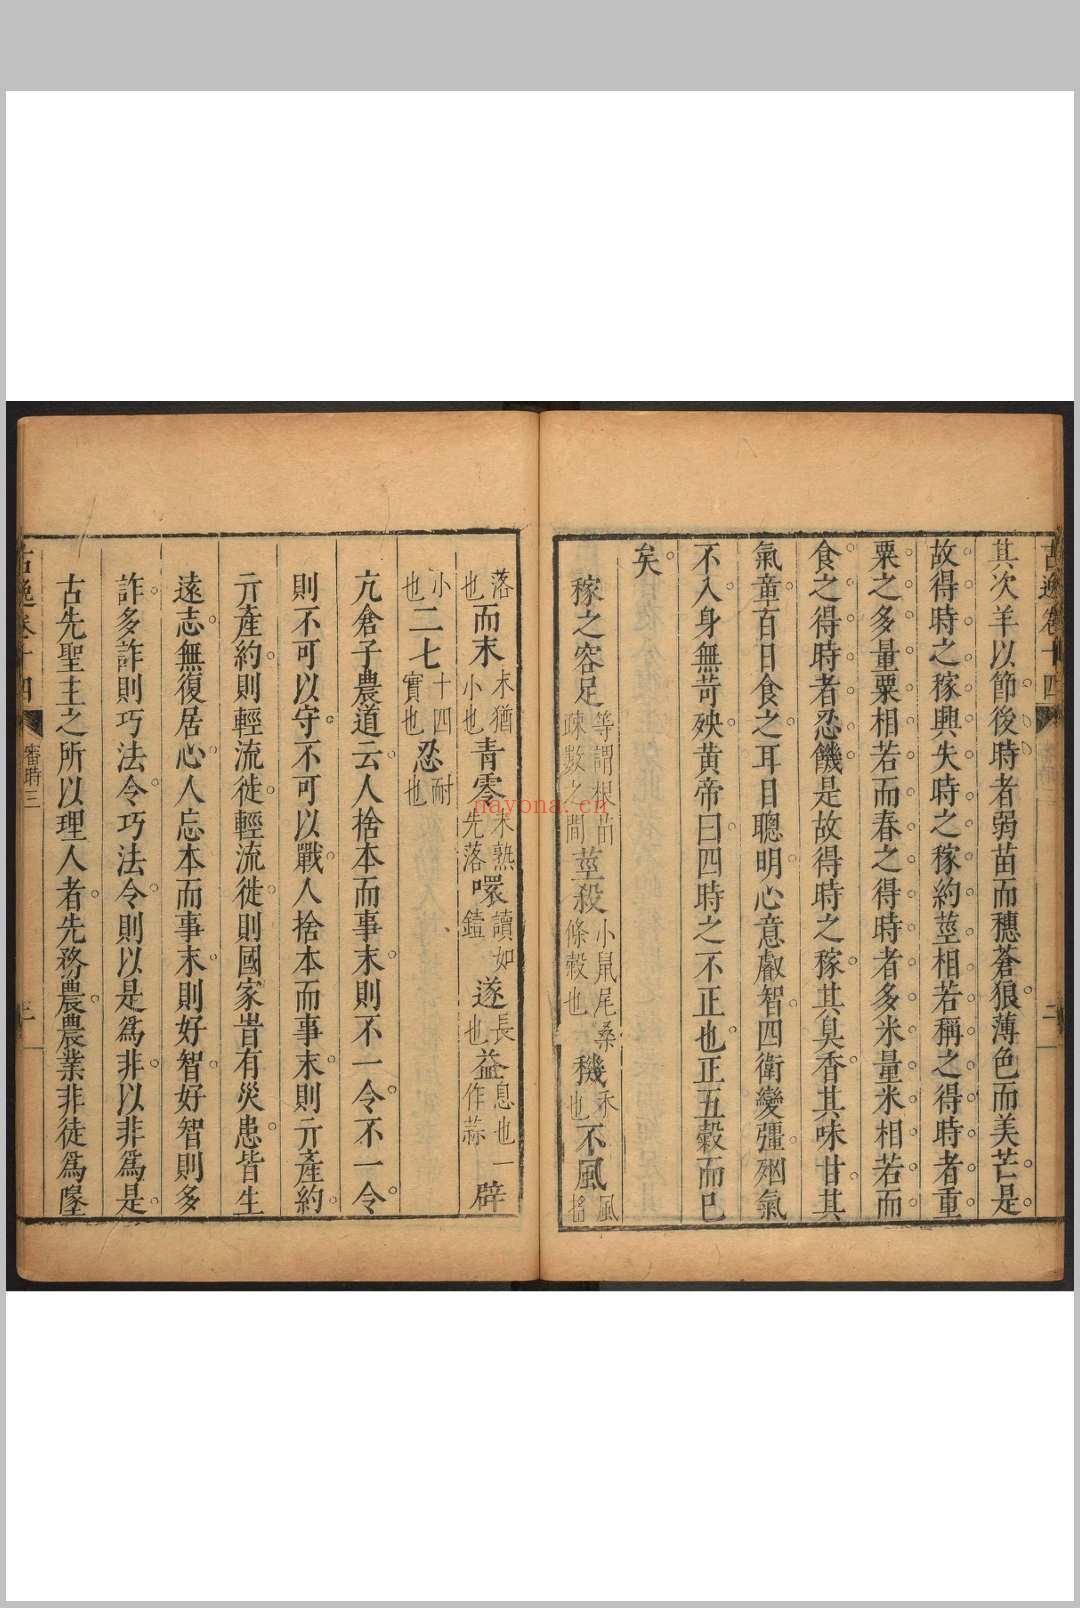 古逸卷十四
二
其次羊以節後時者弱苗而穗蒼狼薄色而美芒是
故得時之稼興失時之稼約莖相若稱之得時者重
粟之多量粟相若而舂之得時者多米量米相若而
食之得時者忍饑是故得時之稼其臭香其味甘其
氣章百日食之耳目聰明心意叡智四衛變彊㐫氣
不入身無苛殃黃帝曰四時之不正也正五穀而已
矣
稼之容足等謂根苗疎數之間莖殺小鼠尾桑條殺也穖禾也不風風搖
落也而末末猶小也青零未熟先落㘣讀如鐀遂長也益息也作蒜一辟
小也二七十四實也忍耐也
亢倉子農道云人捨本而事末則不一令不一令
則不可以守不可以戰人捨本而事末則亓產約
亓產約則輕流徙輕流徙則國家旹有災患皆生
遠志無復居心人忘本而事末則好智好智則多
詐多詐則巧法令巧法令則以是爲非以非爲是
古先聖主之所以理人者先務農農業非徒爲墬
古逸卷十四
審時三
三
nayona.cn